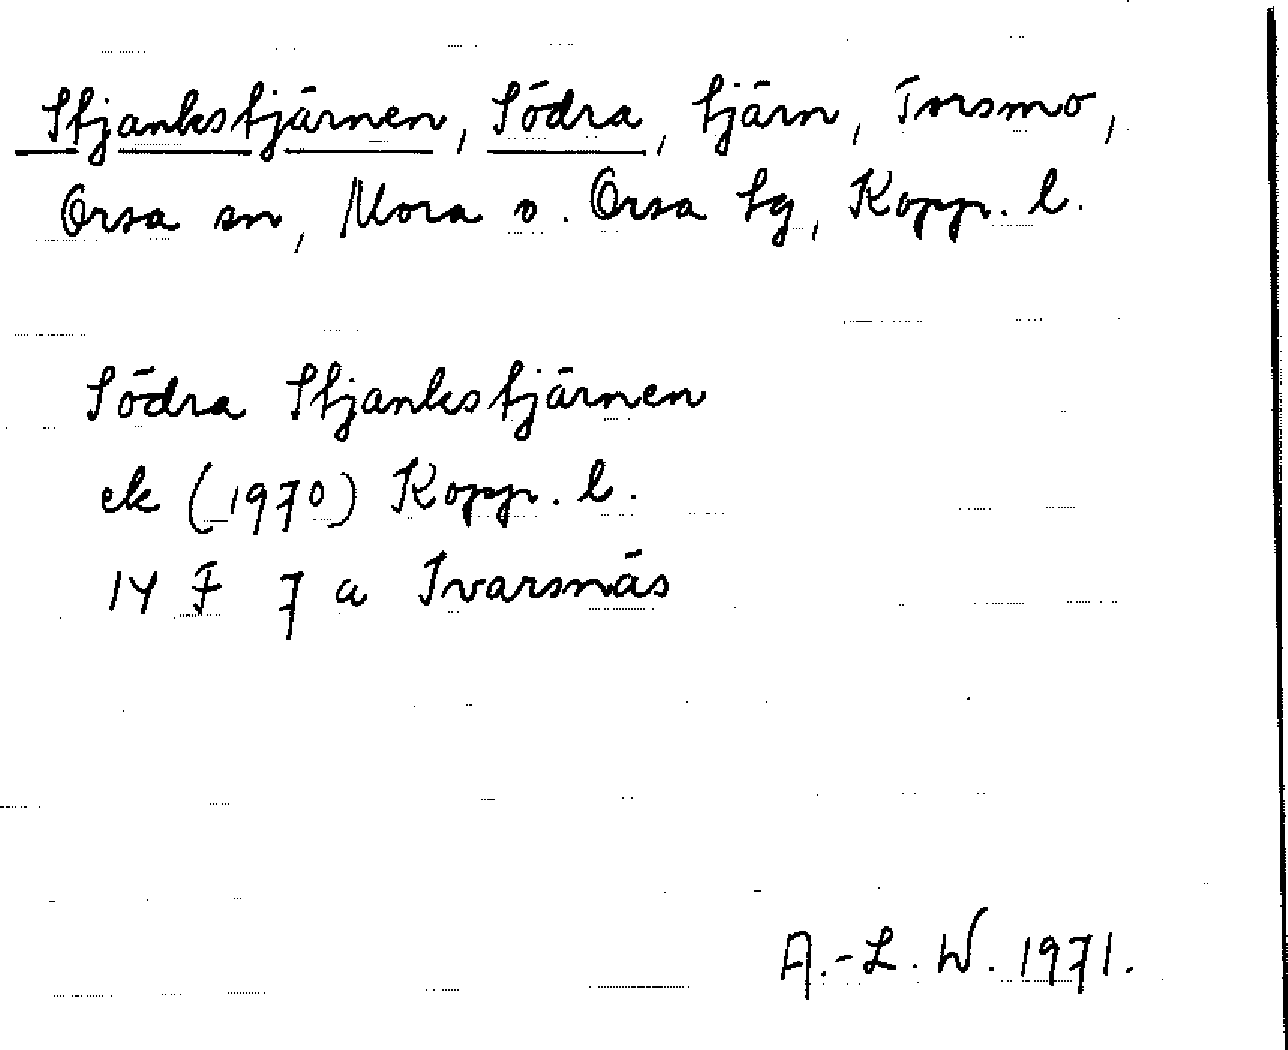 Stjankstjärnen, Södra, tjärn, Torsmo,
Orsa sn, Mora o. Orsa tg, Kopp. l.
Södra Stjankstjärnen
ek (1970) Kopp. l.
14 F 7 a Ivarsnäs
A.-L. W. 1971.